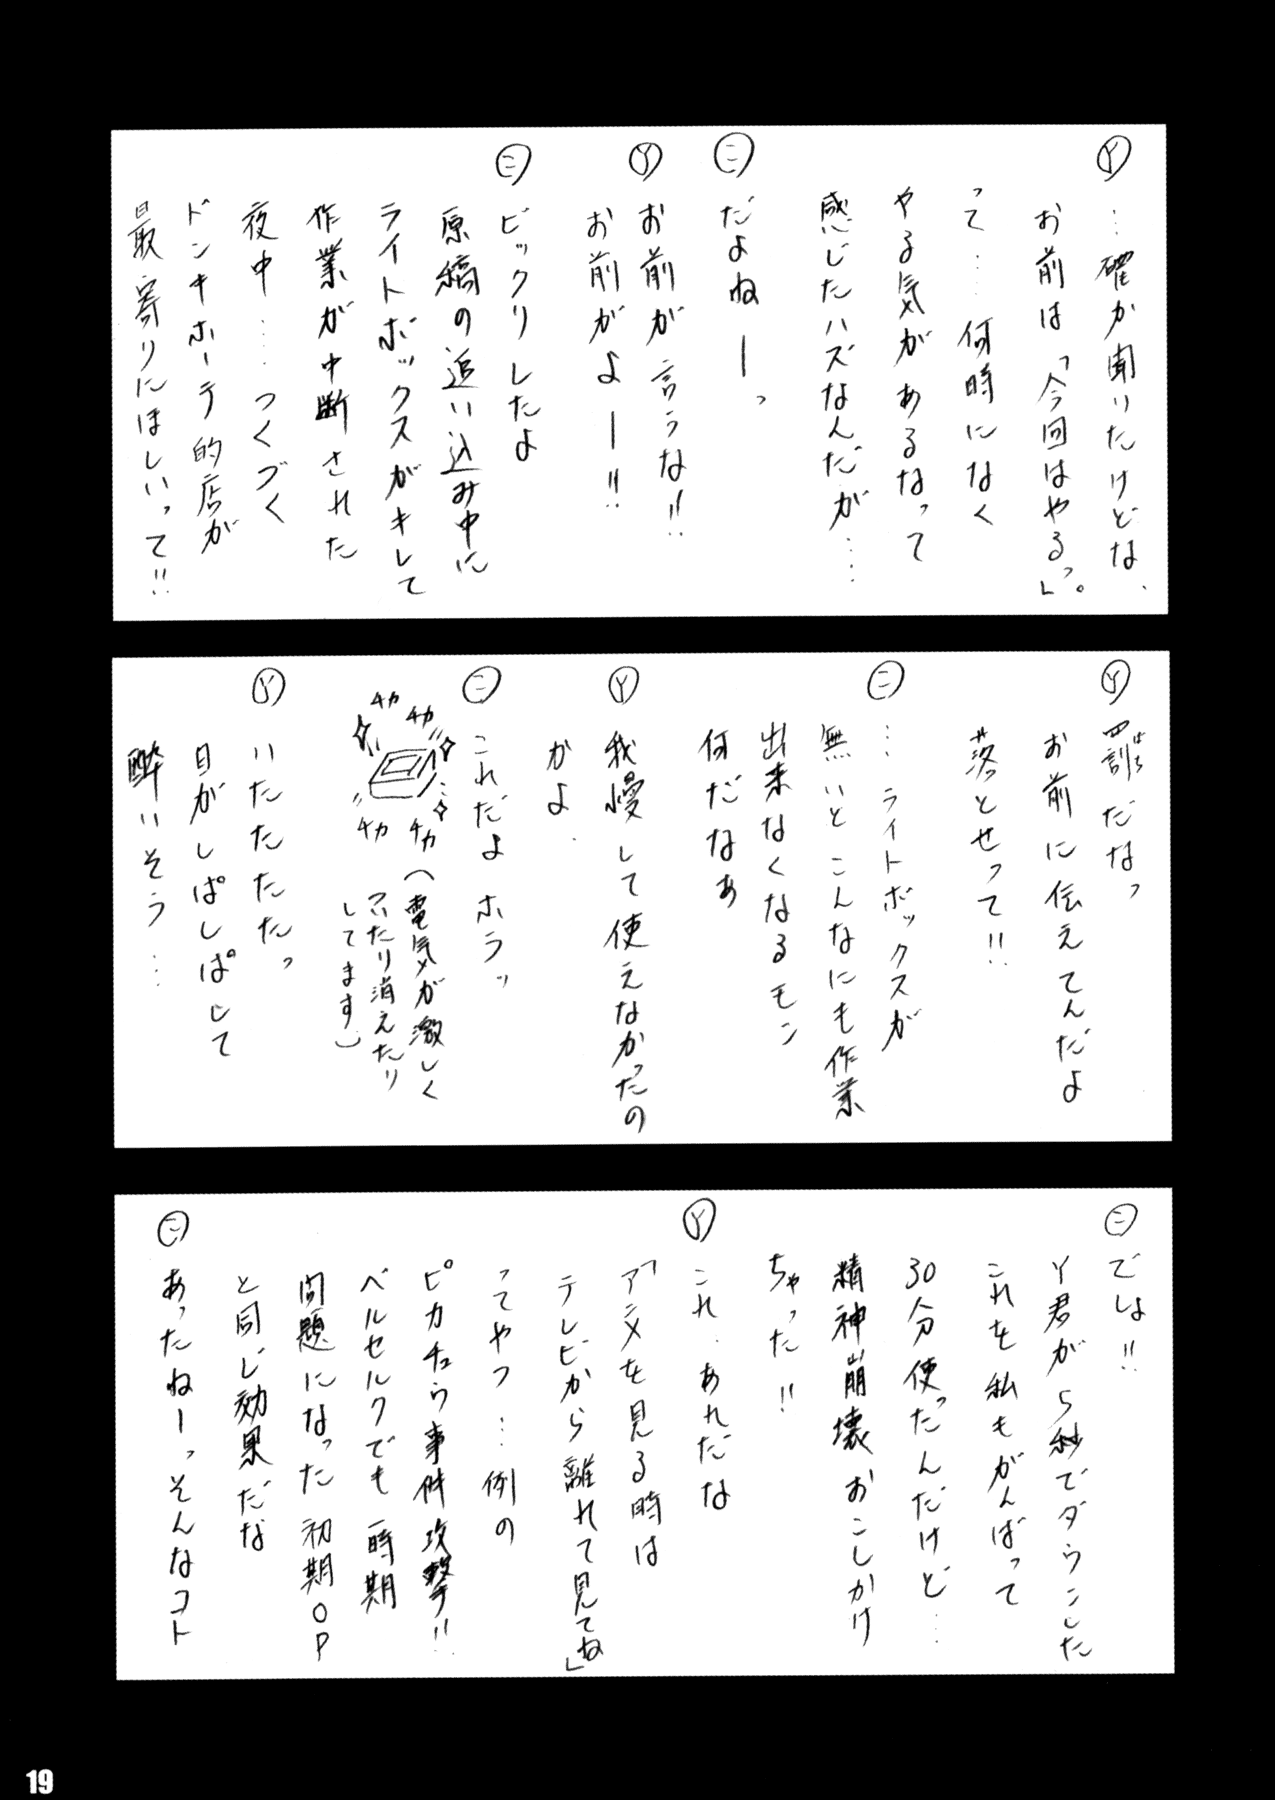 Ⓨ…確か聞いたけどな、
お前は「今回はやるっ。」
って……何時になく
やる気があるなって
感じたハズなんだが……
㊁だよねーっ
Ⓨお前が言うな!!
お前がよー!!
㊁ビックリしたよ
原稿の追い込み中に
ライトボックスがキレて
作業が中断された
夜中……つくづく
ドンキホーテ的店が
最寄りにほしいって!!
Ⓨ罰だなっ
ばち
お前に伝えてんだよ
落とせって!!
㊁…ライトボックスが
無いとこんなにも作業
出来なくなるモン
何だなぁ
Ⓨ我慢して使えなかったの
かよ.
㊁これだよホラッ
チカ
チカ
チカ
チカ
(電気が激しく
ついたり消えたり
してます)
Ⓨいたたたたっ
目がしぱしぱして
酔いそう…
㊁でしょ!!
Y君が5秒でダウンした
これを私もがんばって
30分使ったんだけど…
精神崩壊おこしかけ
ちゃった!!
Ⓨこれ、あれだな
「アニメを見る時は
テレビから離れて見てね」
ってやつ…例の
ピカチュウ事件攻撃!!
ベルセルクでも一時期
問題になった初期OP
と同じ効果だな
㊁あったねーっそんなコト
19